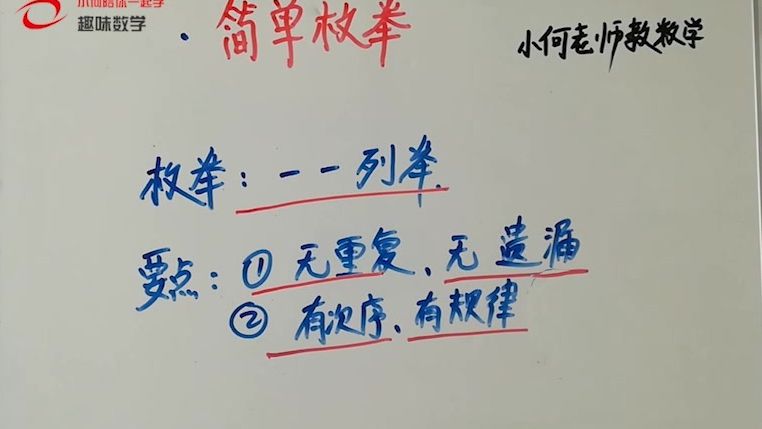 小何陪你一起学
趣味数学
· 简单枚举
小何老师教数学
枚举：一一列举.
要点：① 无重复、无遗漏
② 有次序、有规律